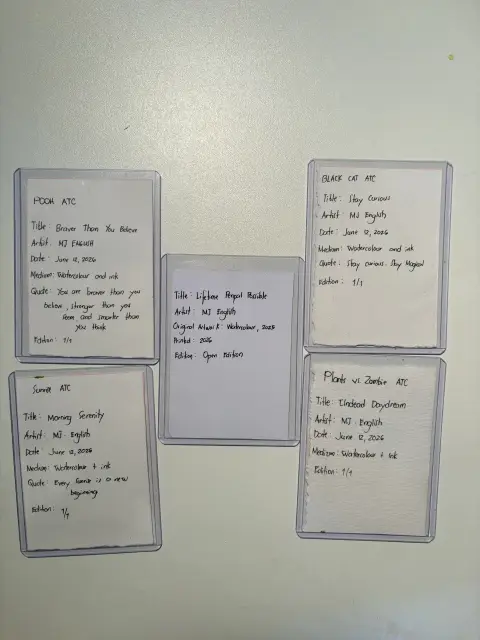 POOH ATC
Title: Braver Than You Believe
Artist: MJ ENGLISH
Date: June 12, 2026
Medium: Watercolour and ink
Quote: You are braver than you
believe, stronger than you
seem and smarter than
you think
Edition: 1/1
BLACK CAT ATC
Title: Stay Curious
Artist: MJ English
Date: June 12, 2026
Medium: Watercolour and ink
Quote: Stay curious. Stay Magical
Edition: 1/1
Title: Lifetime Penpal Possible
Artist: MJ English
Original Artwork: Watercolour, 2025
Printed: 2026
Edition: Open Edition
Sunrise ATC
Title: Morning Serenity
Artist: MJ English
Date: June 12, 2026
Medium: Watercolour + ink
Quote: Every Sunrise is a new
beginning
Edition: 1/1
Plants vs. Zombie ATC
Title: Undead Daydream
Artist: MJ English
Date: June 12, 2026
Medium: Watercolour + ink
Edition: 1/1